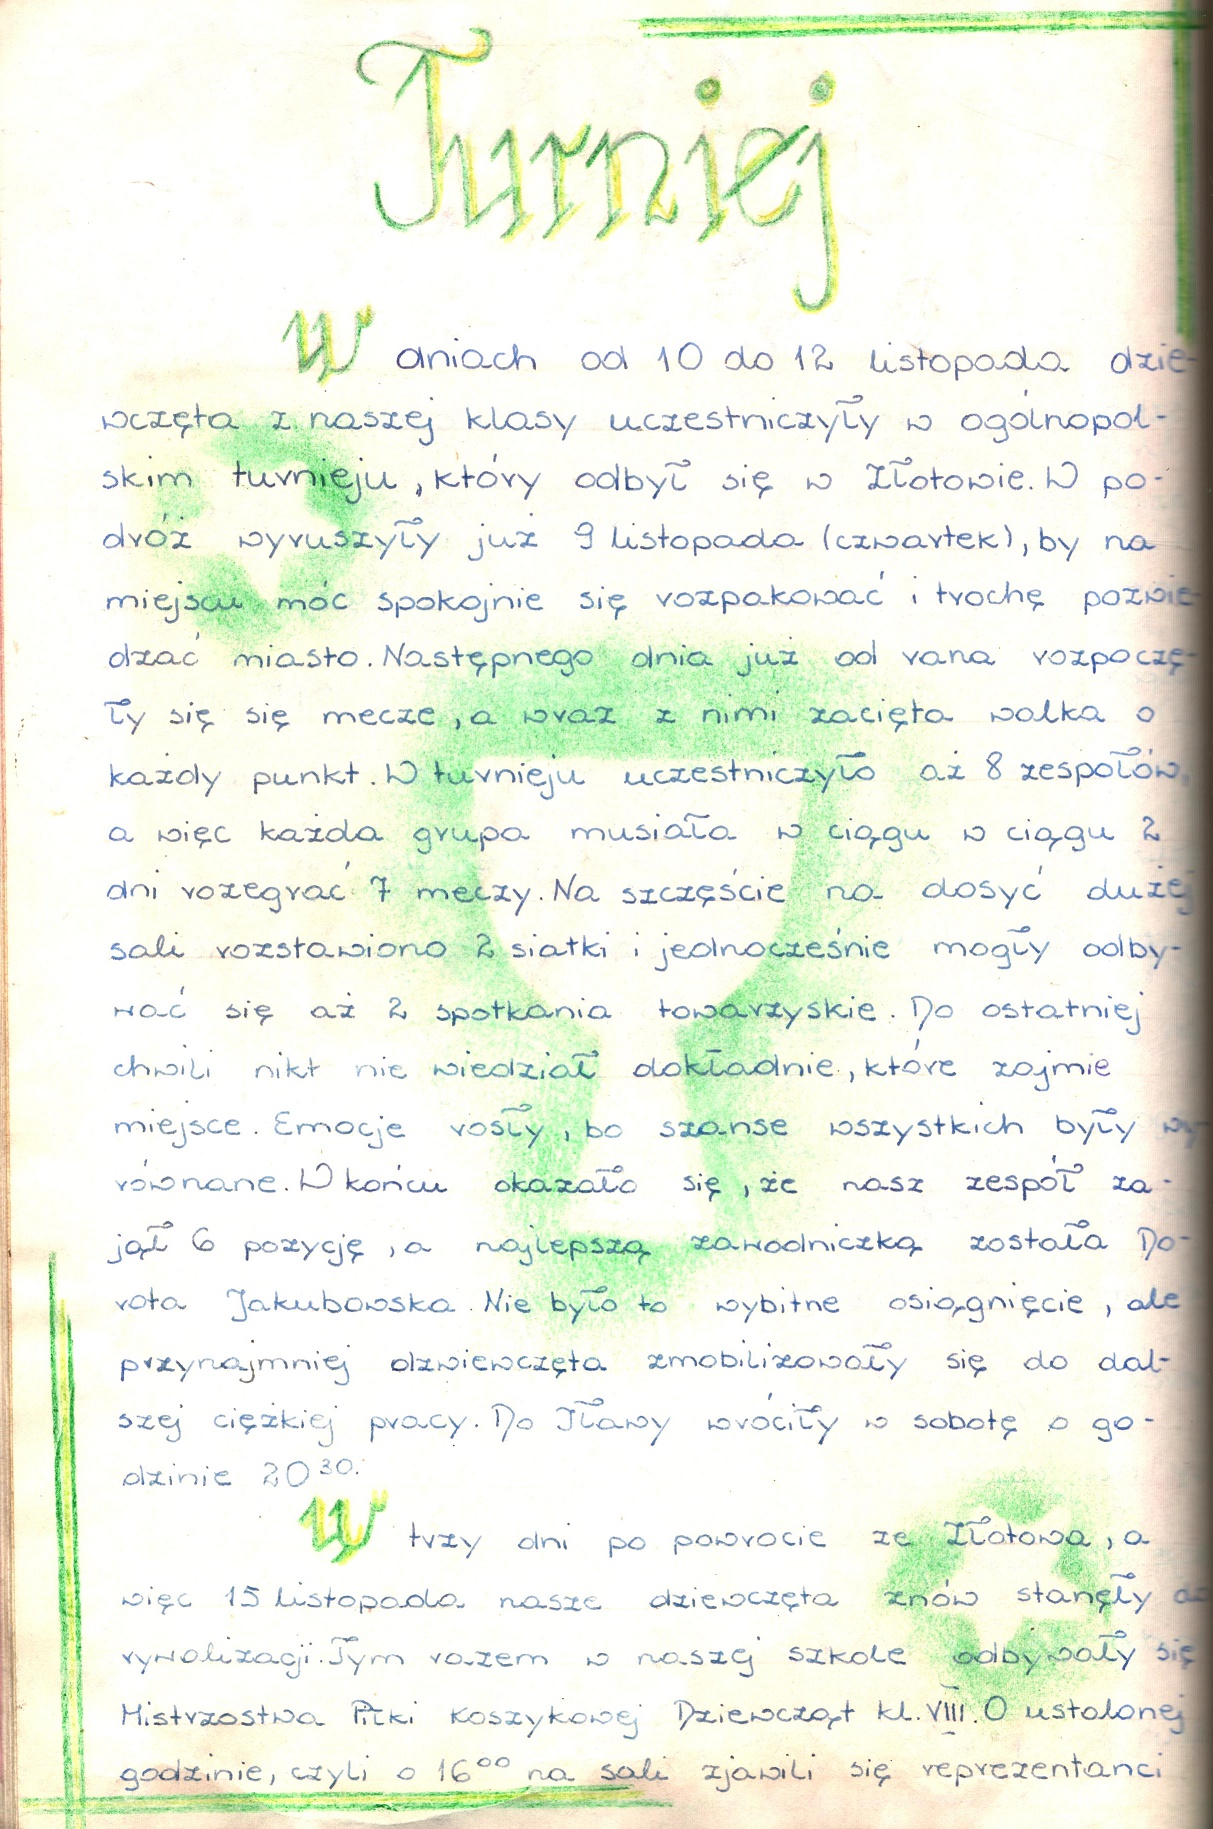 Turniej
W dniach od 10 do 12 listopada dzie-
wczęta z naszej klasy uczestniczyły w ogólnopol-
skim turnieju, który odbył się w Złotowie. W po-
dróż wyruszyły już 9 listopada (czwartek), by na
miejscu móc spokojnie się rozpakować i trochę pozwie-
dzać miasto. Następnego dnia już od rana rozpoczę-
ły się się mecze, a wraz z nimi zacięta walka o
każdy punkt. W turnieju uczestniczyło aż 8 zespołów,
a więc każda grupa musiała w ciągu w ciągu 2
dni rozegrać 7 meczy. Na szczęście na dosyć dużej
sali rozstawiono 2 siatki i jednocześnie mogły odby-
wać się aż 2 spotkania towarzyskie. Do ostatniej
chwili nikt nie wiedział dokładnie, które zajmie
miejsce. Emocje rosły, bo szanse wszystkich były wy
równane. W końcu okazało się, że nasz zespół za-
jął 6 pozycję, a najlepszą zawodniczką została Do-
rota Jakubowska. Nie było to wybitne osiągnięcie, ale
przynajmniej dzwiewczęta zmobilizowały się do dal-
szej ciężkiej pracy. Do Iławy wróciły w sobotę o go-
dzinie 20³⁰.
W trzy dni po powrocie ze Złotowa, a
więc 15 listopada nasze dziewczęta znów stanęły do
rywalizacji. Tym razem w naszej szkole odbywały się
Mistrzostwa Piłki Koszykowej Dziewcząt kl. VIII. O ustalonej
godzinie, czyli o 16⁰⁰ na sali zjawili się reprezentanci